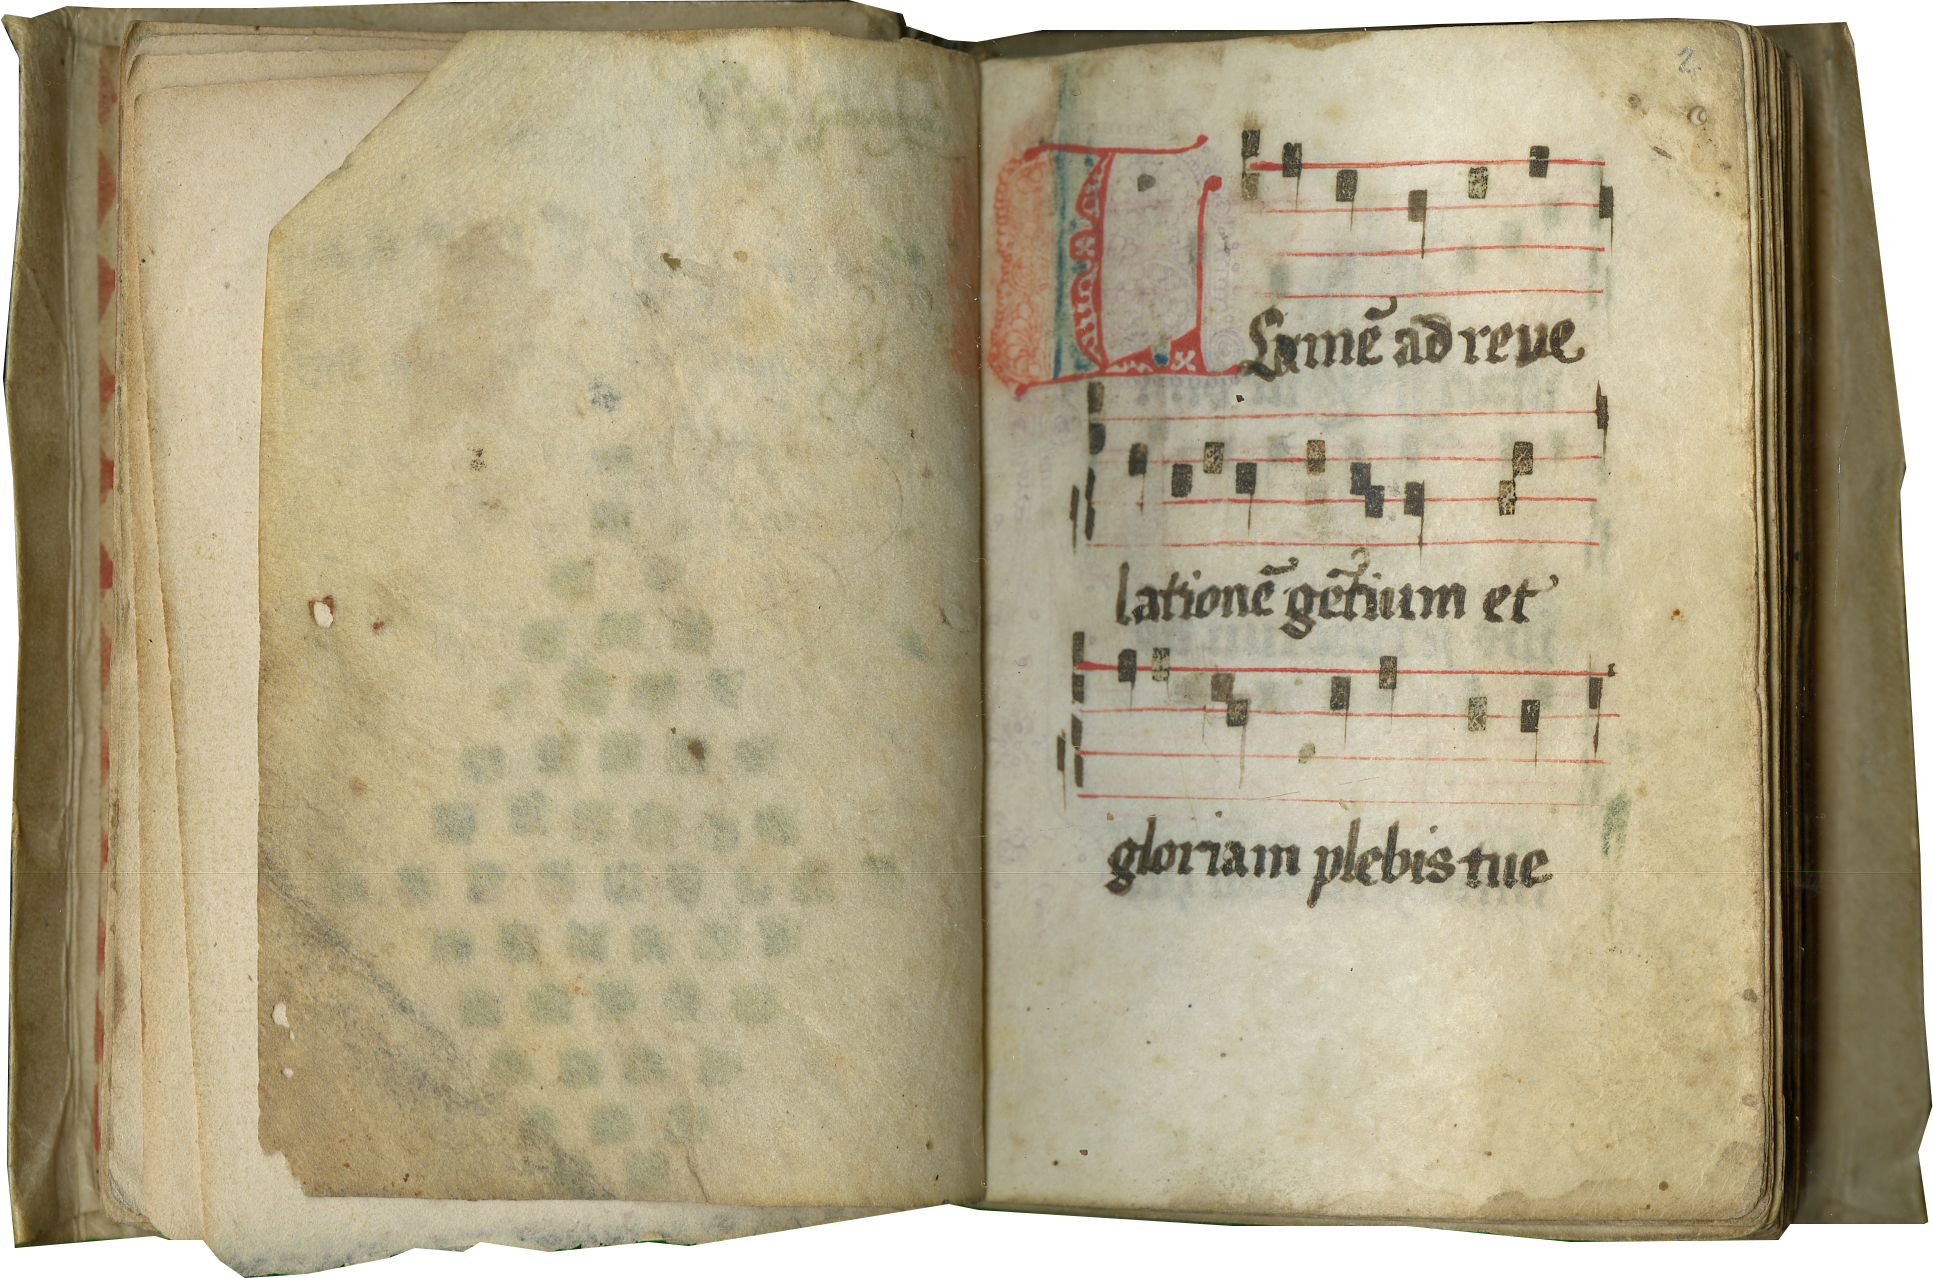 2
Lumē ad reve
lationē gētium et
gloriam plebis tue